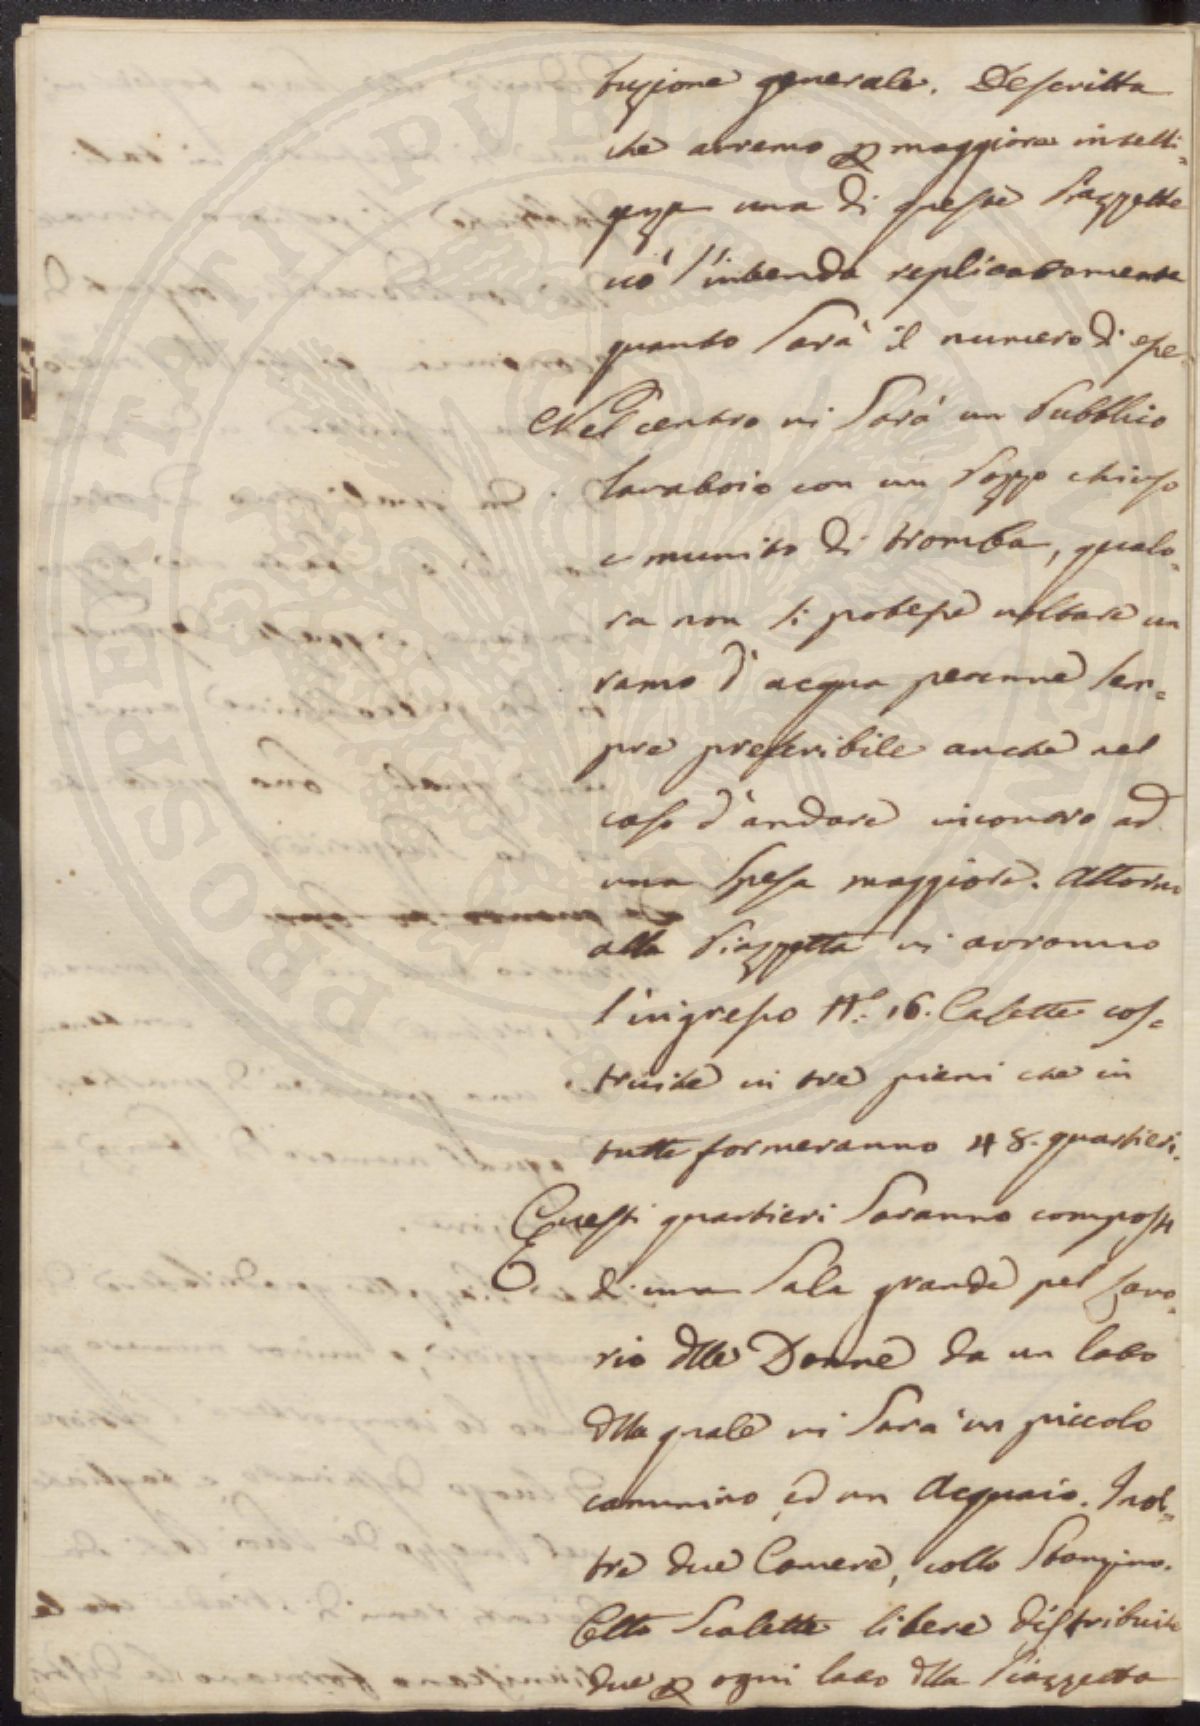 buzione generale. Descritta
che avremo p maggiore intelli=
genza una di queste Piazzette
ciò s'intenda replicatamente
quanto sarà il numero di esse.
Nel centro vi sarà un Pubblico
lavatoio con un Pozzo chiuso
e munito di tromba, qualo=
ra non si potesse voltare un
ramo d'acqua perenne sem=
pre preferibile anche nel
caso d'andare incontro ad
una spesa maggiore. Attorno
alla Piazzetta vi avranno
l'ingresso N.º 16. Casette cos=
truite in tre piani che in
tutte formeranno 48. quartieri.
Questi quartieri saranno composti
di una Sala grande pel Lavo=
rio dlle Donne da un lato
dlla quale vi sarà un piccolo
cammino ed un Acquaio. Inol=
tre due Camere, collo Stanzino.
Otto Scalette libere distribuite
due p ogni lato dlla Piazzetta
PROSPERITATI PVBLICAE AVGENDAE